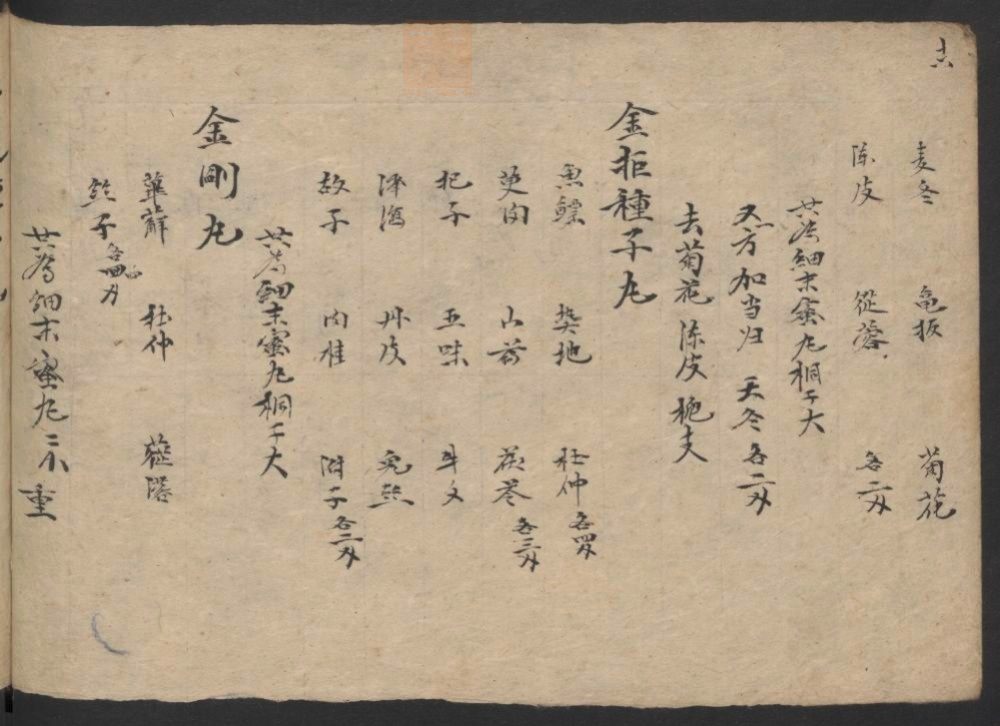 麦冬 龟板 菊花
陈皮 從蓉 各二刄
共為細末蜜丸桐子大
又方加当归 天冬各二刄
去菊花 陈皮
金 種子丸
魚鰾 熟地 杜仲各四刄
萸肉 山薬 茯苓各三刄
杞子 五味 牛夕
澤瀉 丹皮 兔丝
故子 肉桂 附子各二刄
共為細末蜜丸桐子大
金剛丸
萆薢 杜仲 蓉
子 各四刄
共為細末蜜丸 重